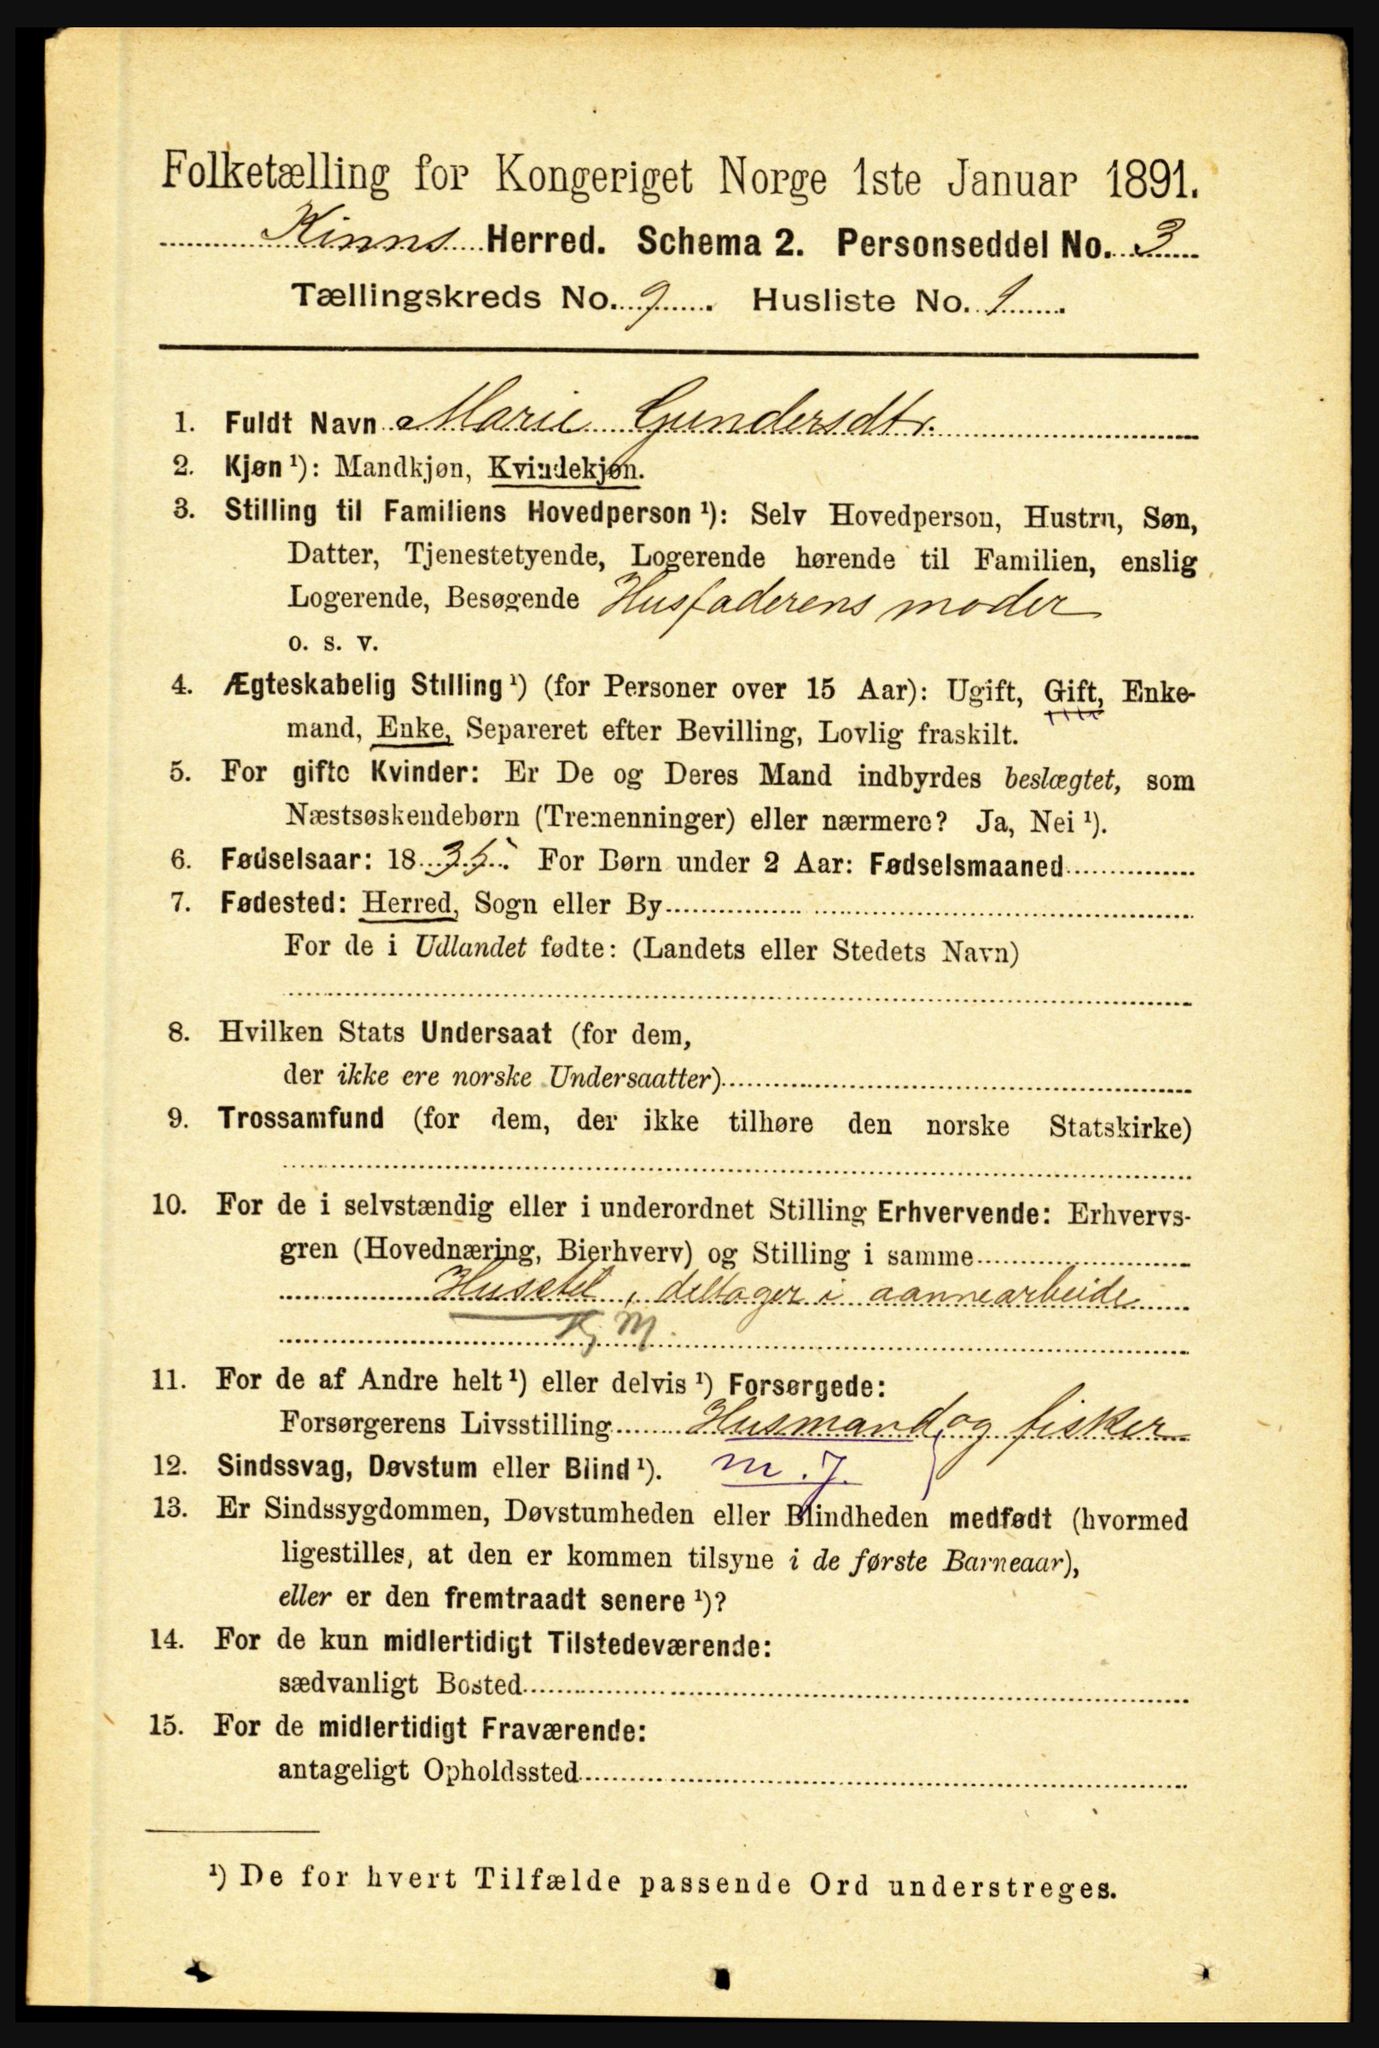 Folketælling for Kongeriget Norge 1ste Januar 1891.
Kinns Herred. Schema 2. Personseddel No. 3
Tællingskreds No. 9. Husliste No. 1.
1. Fuldt Navn Marie Gundersdtr.
2. Kjøn ¹): Mandkjøn, Kvindekjøn.
3. Stilling til Familiens Hovedperson ¹): Selv Hovedperson, Hustru, Søn,
Datter, Tjenestetyende, Logerende hørende til Familien, enslig
Logerende, Besøgende Husfaderens moder
o. s. v.
4. Ægteskabelig Stilling ¹) (for Personer over 15 Aar): Ugift, Gift, Enke-
mand, Enke, Separeret efter Bevilling, Lovlig fraskilt.
5. For gifte Kvinder: Er De og Deres Mand indbyrdes beslægtet, som
Næstsøskendebørn (Tremenninger) eller nærmere? Ja, Nei ¹).
6. Fødselsaar: 1835. For Børn under 2 Aar: Fødselsmaaned
7. Fødested: Herred, Sogn eller By
For de i Udlandet fødte: (Landets eller Stedets Navn)
8. Hvilken Stats Undersaat (for dem,
der ikke ere norske Undersaatter)
9. Trossamfund (for dem, der ikke tilhøre den norske Statskirke)
10. For de i selvstændig eller i underordnet Stilling Erhvervende: Erhvervs-
gren (Hovednæring, Bierhverv) og Stilling i samme
Husstel, deltager i aannearbeide
11. For de af Andre helt ¹) eller delvis ¹) Forsørgede:
Forsørgerens Livsstilling Husmand og fisker
12. Sindssvag, Døvstum eller Blind ¹). m. J.
13. Er Sindssygdommen, Døvstumheden eller Blindheden medfødt (hvormed
ligestilles, at den er kommen tilsyne i de første Barneaar),
eller er den fremtraadt senere ¹)?
14. For de kun midlertidigt Tilstedeværende:
sædvanligt Bosted
15. For de midlertidigt Fraværende:
antageligt Opholdssted
¹) De for hvert Tilfælde passende Ord understreges.